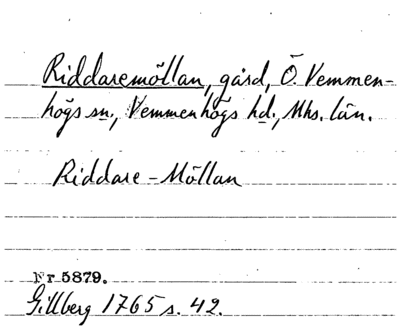 Riddaremöllan, gård, Ö. Vemmen-
högs sn, Vemmenhögs hd., Mhs. län.
Riddare-Möllan
Nr 5879.
Gillberg 1765 s. 42.